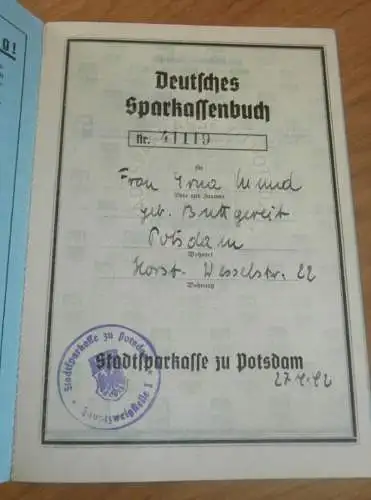 g!
Deutsches
Sparkassenbuch
Nr. 41119
für
Frau Erna Mund
Vor- und Zuname
geb. Buttgereit
Potsdam
Wohnort
Horst-Wesselstr. 22
Wohnung
Stadtsparkasse zu Potsdam
Stadtsparkasse zu Potsdam
Hauptzweigstelle I